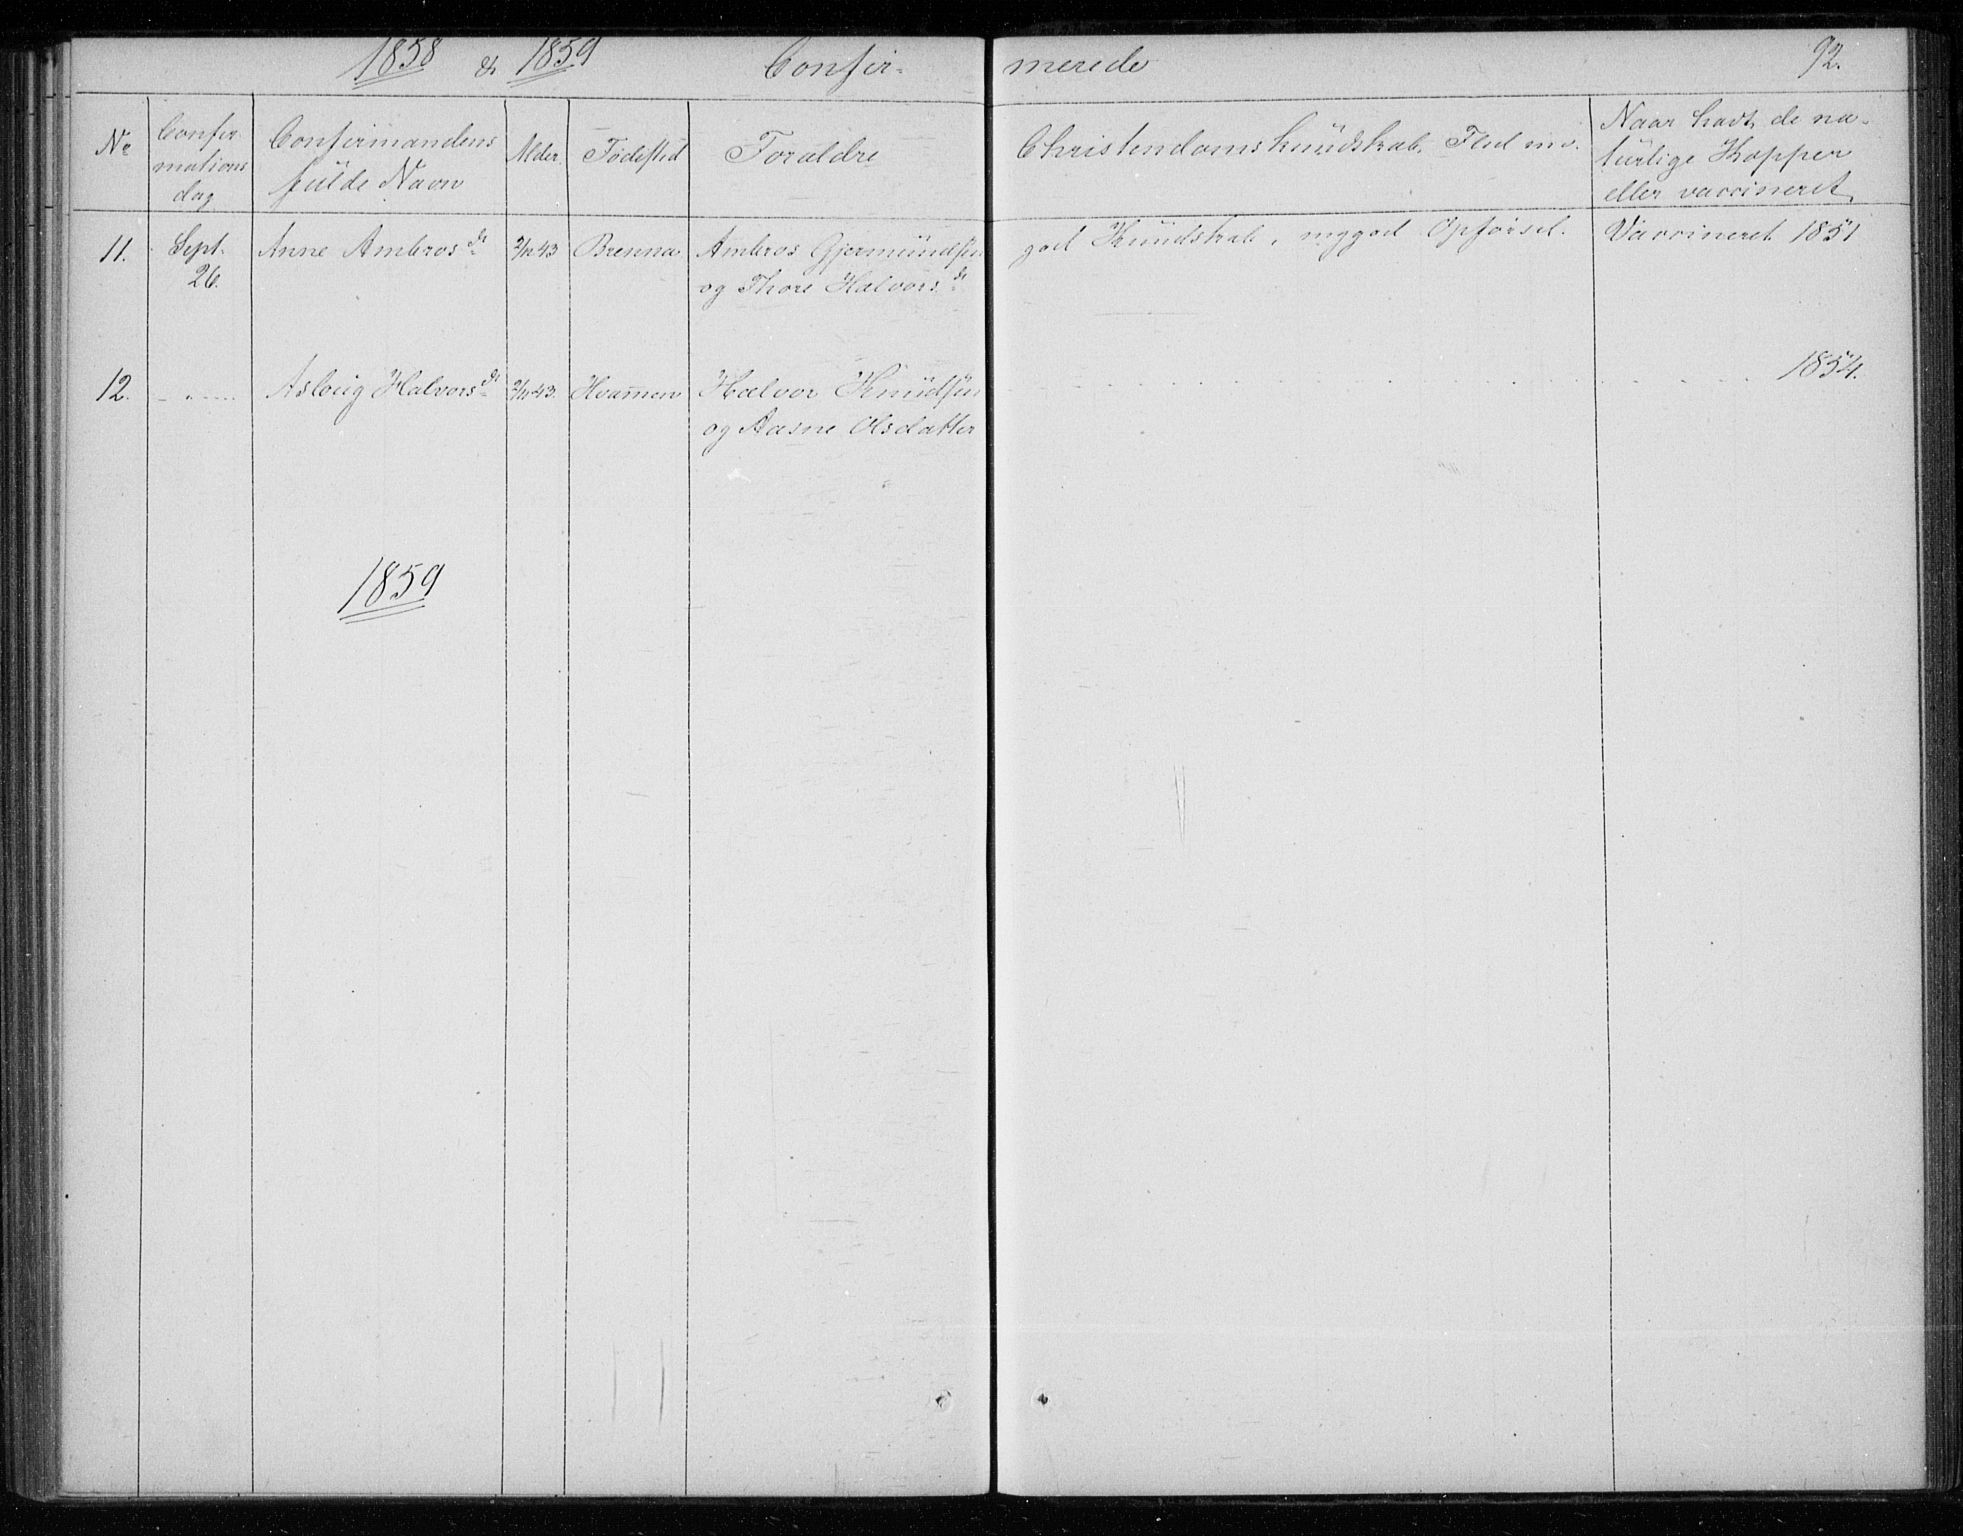 1858 & 1859 Confir- merede 92.
No
Confir-
mations
dag
Confirmandens
fulde Navn
Alder
Fødested
Forældre
Christendomskundskab, Flid m.v.
Naar havt de na-
turlige Kopper
eller vaccineret
11. Sept. Anne Ambrosdr 43 Brenna Ambros Gjermundsen god Kundskab, mg god Opførsel. Vaccineret 1851
26. og Thore Halvorsdr
12. - " - Aslaug Halvorsdr 43. Hvammen Halvor Knudsen 1854.
og Aasne Olsdatter
1859